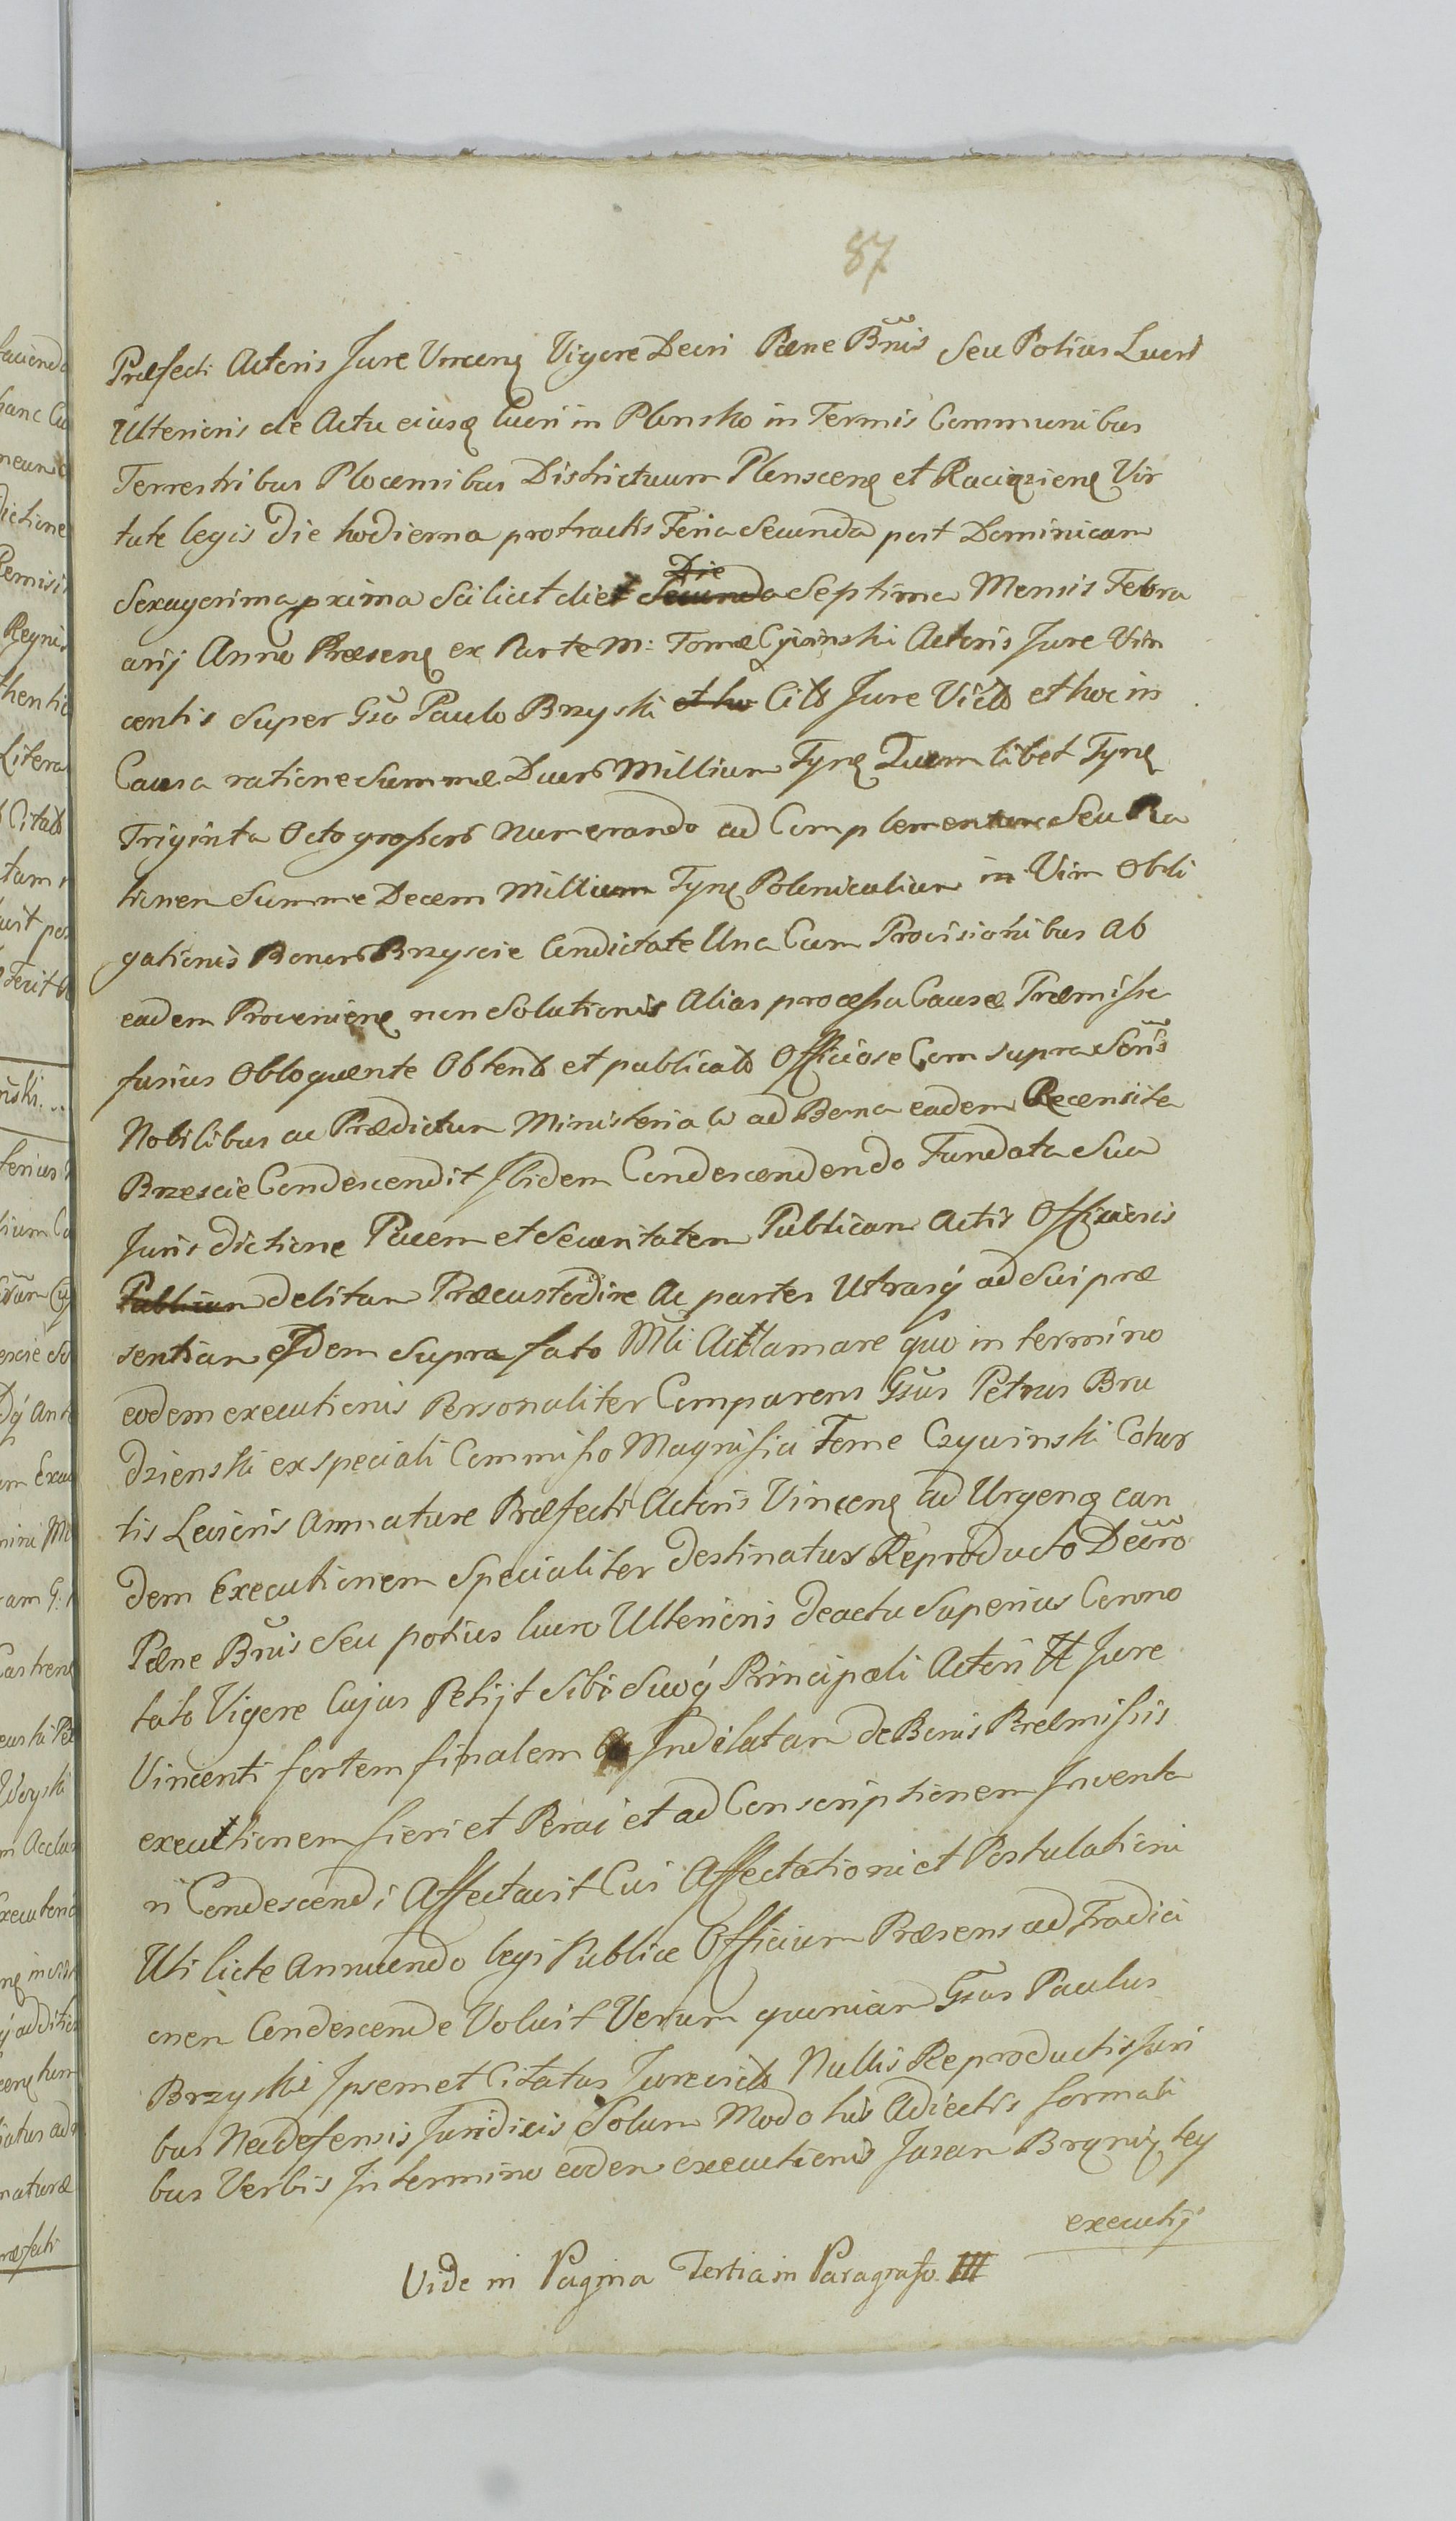 87
Præfecti Actoris Jure Vincenꝫ Vigore Decri Pæne Bn̄is Seu Potius Lucri
Ulterioris de Actu eiusꝫ Lucri in Plonsko in Termis Communibus
Terrestribus Plocensibus Districtuum Plonscenꝫ et Raciązienꝫ Vir
tute legis Die hodierna protractis Feria Secunda post Dominicam
Sexagesima pxima Scilicet die Secunda Die Septima Mensis Febru
arij Anno Præsenꝫ ex Parte M: Tomæ Cywinski Actoris Jure Vin
centis Super Gsō Paulo Brzyski et ho Citō Jure Victō et hoc in
Causa ratione Summæ Duorō Millium Tynꝫ Quemlibet Tynꝫ
Triginta Octo grossorō numerando ad Complementum Seu Ra
tionem Summe Decem Millium Tynꝫ Polonicalium in Vim Obli
gationis Bonorō Brzyscie Condictate Una Cum Provisionibus Ab
eadem Provenienꝫ non Solutionis Alias processu Causæ Præmisse
fusius Obloquente Obtento et publicato Officiose Com supra Scrīs
Nobilibus ac Prædictum Ministeriale ad Bona eadem Recensita
Brzescie Condescendit Ibidem Condescendendo Fundata Sua
Juris dictione Pacem et Securitatem Publicam Actis Officiosis
Publicam delitam Præcustodire Ac partes Utrasq́ ad Sui præ
sentiam eīdem Supra fato Mli Acclamare quo in termino
eodem executionis Personaliter Comparens Gsūs Petrus Bru
dzienski ex speciali Commisso Magnifici Tome Czywinski Cohor
tis Levioris Armature Præfecti Actoris Vincenꝫ ad Urgenꝫ ean
dem Executionem Specialiter destinatus Reproducto Decro
Pæne Bn̄is Seu potius lucro Ulterioris de actu Superius Conno
tato Vigore Cujus Petijt Sibi Suoq́ Principali Actori Jure
Vincenti fortem finalem Indilatam de Bonis Præmissis
executionem fieri et Peraci et ad Conscriptionem Inventa
ri Condescendi Affectavit Cui Affectationi et Postulationi
Uti licite Annuendo legi Publice Officium Præsens ad Tradici
onen Condescende Voluit Verum quoniam Gsūs Paulus
Brzyski Ipsemet Citatus Jurevictō Nullis Reproductis Juri
bus Necdefensis Juridicis Solum Modo his Adiectis formali
bus Verbis In termino eodem executionis Jasam Bronię tey
executij
Vide in Pagina Tertia in Paragrafo III